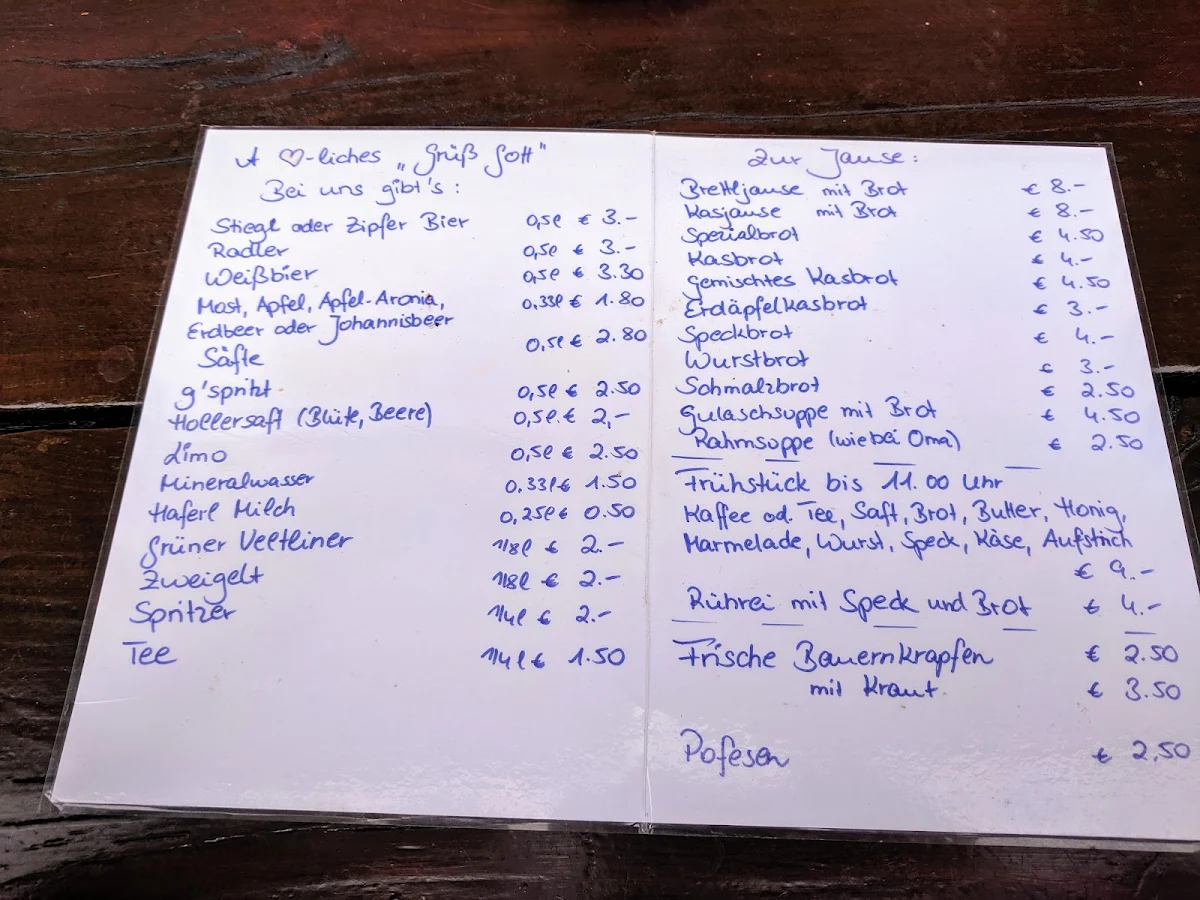 A ♡-liches „Grüß Gott"
Bei uns gibt's :
Stiegl oder Zipfer Bier 0,5l € 3.-
Radler 0,5l € 3.-
Weißbier 0,5l € 3.30
Most, Apfel, Apfel-Aronia, 0,33l € 1.80
Erdbeer oder Johannisbeer
Säfte 0,5l € 2.80
g'spritzt 0,5l € 2.50
Hollersaft (Blüte, Beere) 0,5l. € 2,-
Limo 0,5l € 2.50
Mineralwasser 0,33l € 1.50
Haferl Milch 0,25l € 0.50
Grüner Veltliner 1/8l € 2.-
Zweigelt 1/8l € 2.-
Spritzer 1/4l € 2.-
Tee 1/4l € 1.50
Zur Jause:
Brettljause mit Brot € 8.-
Kasjause mit Brot € 8.-
Spezialbrot € 4.50
Kasbrot € 4.-
Gemischtes Kasbrot € 4.50
Erdäpfelkasbrot € 3.-
Speckbrot € 4.-
Wurstbrot € 3.-
Schmalzbrot € 2.50
Gulaschsuppe mit Brot € 4.50
Rahmsuppe (wie bei Oma) € 2.50
Frühstück bis 11.00 Uhr
Kaffee od. Tee, Saft, Brot, Butter, Honig,
Marmelade, Wurst, Speck, Käse, Aufstrich
€ 9.-
Rührei mit Speck und Brot € 4.-
Frische Bauernkrapfen € 2.50
mit Kraut € 3.50
Pofesen € 2,50